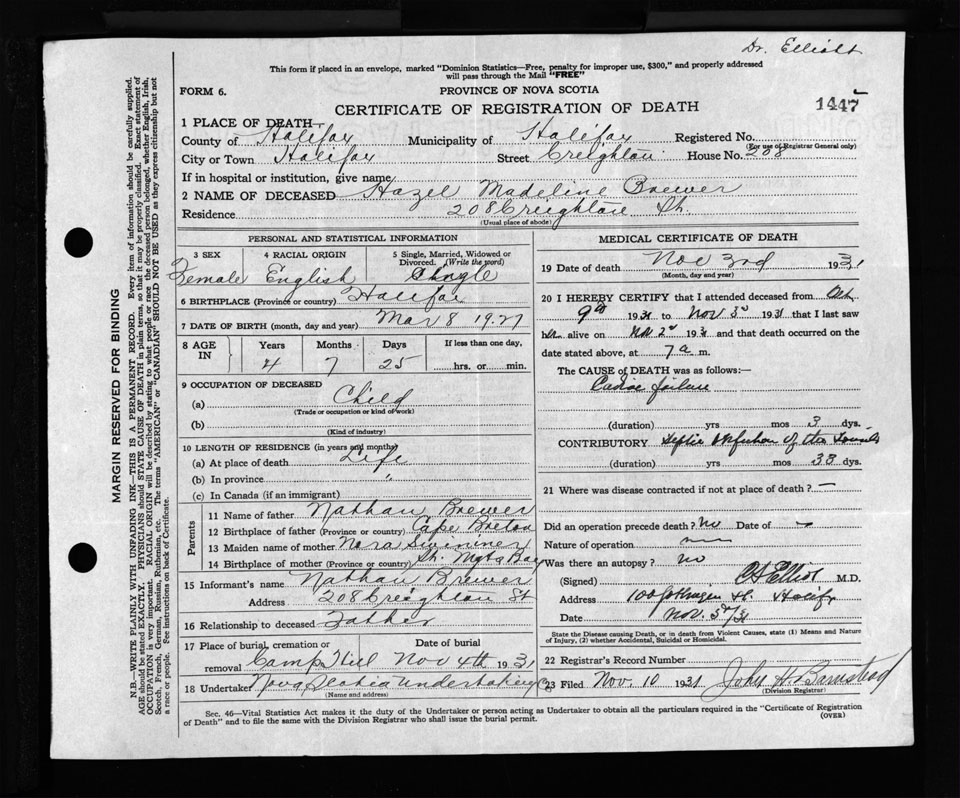 Dr. Elliott
This form if placed in an envelope, marked "Dominion Statistics—Free, penalty for improper use, $300," and properly addressed
will pass through the Mail "FREE"
FORM 6.
PROVINCE OF NOVA SCOTIA
CERTIFICATE OF REGISTRATION OF DEATH
1447
1 PLACE OF DEATH—
County of Halifax Municipality of Halifax Registered No.
(For use of Registrar General only)
City or Town Halifax Street Creighton House No. 208
If in hospital or institution, give name
2 NAME OF DECEASED Hazel Madeline Brewer
Residence 208 Creighton St.
(Usual place of abode)
PERSONAL AND STATISTICAL INFORMATION
3 SEX 4 RACIAL ORIGIN 5 Single, Married, Widowed or Divorced. (Write the word)
Female English Single
6 BIRTHPLACE (Province or country) Halifax
7 DATE OF BIRTH (month, day and year) Mar 8 1927
8 AGE IN Years Months Days If less than one day,
4 7 25 hrs. or min.
9 OCCUPATION OF DECEASED
(a) Child
(Trade or occupation or kind of work)
(b)
(Kind of industry)
10 LENGTH OF RESIDENCE (in years and months)
(a) At place of death Life
(b) In province "
(c) In Canada (if an immigrant)
Parents
11 Name of father Nathan Brewer
12 Birthplace of father (Province or country) Cape Breton
13 Maiden name of mother Nora
14 Birthplace of mother (Province or country) St. Mgts Bay
15 Informant's name Nathan Brewer
Address 208 Creighton St
16 Relationship to deceased Father
17 Place of burial, cremation or removal Date of burial
Camp Hill Nov 4th 1931
18 Undertaker Nova Scotia Undertaking Co
(Name and address)
MEDICAL CERTIFICATE OF DEATH
19 Date of death Nov 3rd 1931
(Month, day and year)
20 I HEREBY CERTIFY that I attended deceased from Oct
9th 1931 to Nov 3rd 1931 that I last saw
her alive on Nov 2nd 1931 and that death occurred on the
date stated above, at 7 a m.
The CAUSE of DEATH was as follows:—
failure
(duration) yrs mos 3 dys.
CONTRIBUTORY Septic of the Tonsils
(duration) yrs mos 38 dys.
21 Where was disease contracted if not at place of death? —
Did an operation precede death? no Date of —
Nature of operation —
Was there an autopsy? no
(Signed) Elliot M.D.
Address St. Halifx
Date Nov. 3rd/31
State the Disease causing Death, or in death from Violent Causes, state (1) Means and Nature
of Injury, (2) whether Accidental, Suicidal or Homicidal.
22 Registrar's Record Number
23 Filed Nov. 10 1931 John H Barnstead
(Division Registrar)
Sec. 46—Vital Statistics Act makes it the duty of the Undertaker or person acting as Undertaker to obtain all the particulars required in the "Certificate of Registration
of Death" and to file the same with the Division Registrar who shall issue the burial permit.
(OVER)
MARGIN RESERVED FOR BINDING
N.B.—WRITE PLAINLY WITH UNFADING INK—THIS IS A PERMANENT RECORD. Every item of information should be carefully supplied.
AGE should be stated EXACTLY. PHYSICIANS should STATE CAUSE OF DEATH in plain terms, so that it may be properly classified. Exact statement of
OCCUPATION is very important. RACIAL ORIGIN will be described by stating to what people or race the deceased person belonged, whether English, Irish,
Scotch, French, German, Russian, Ruthenian, etc. The terms "AMERICAN" or "CANADIAN" SHOULD NOT BE USED as they express citizenship but not
a race or people. See instructions on back of Certificate.